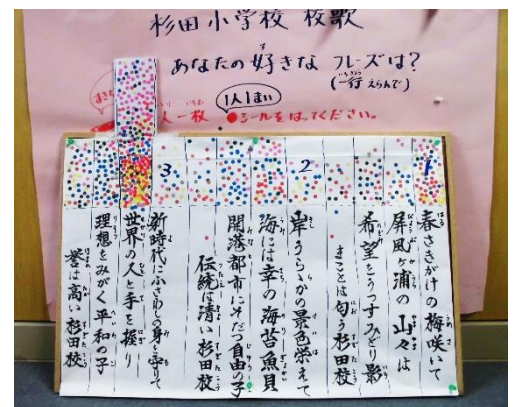 杉田小学校 校歌
あなたの好きなフレーズは?
(一行えらんで)
1人1まい
人一枚 ●シールをはってください。
1
春さきがけの梅咲いて
屏風ヶ浦の山々は
希望をうつすみどり影
まことは匂う杉田校
2
岸うららかの景色栄えて
海には幸の海苔魚貝
開港都市にそだつ自由の子
伝統は清い杉田校
3
新時代にふさわしの身を守りて
世界の人と手を握り
理想をみがく平和の子
誉は高い杉田校